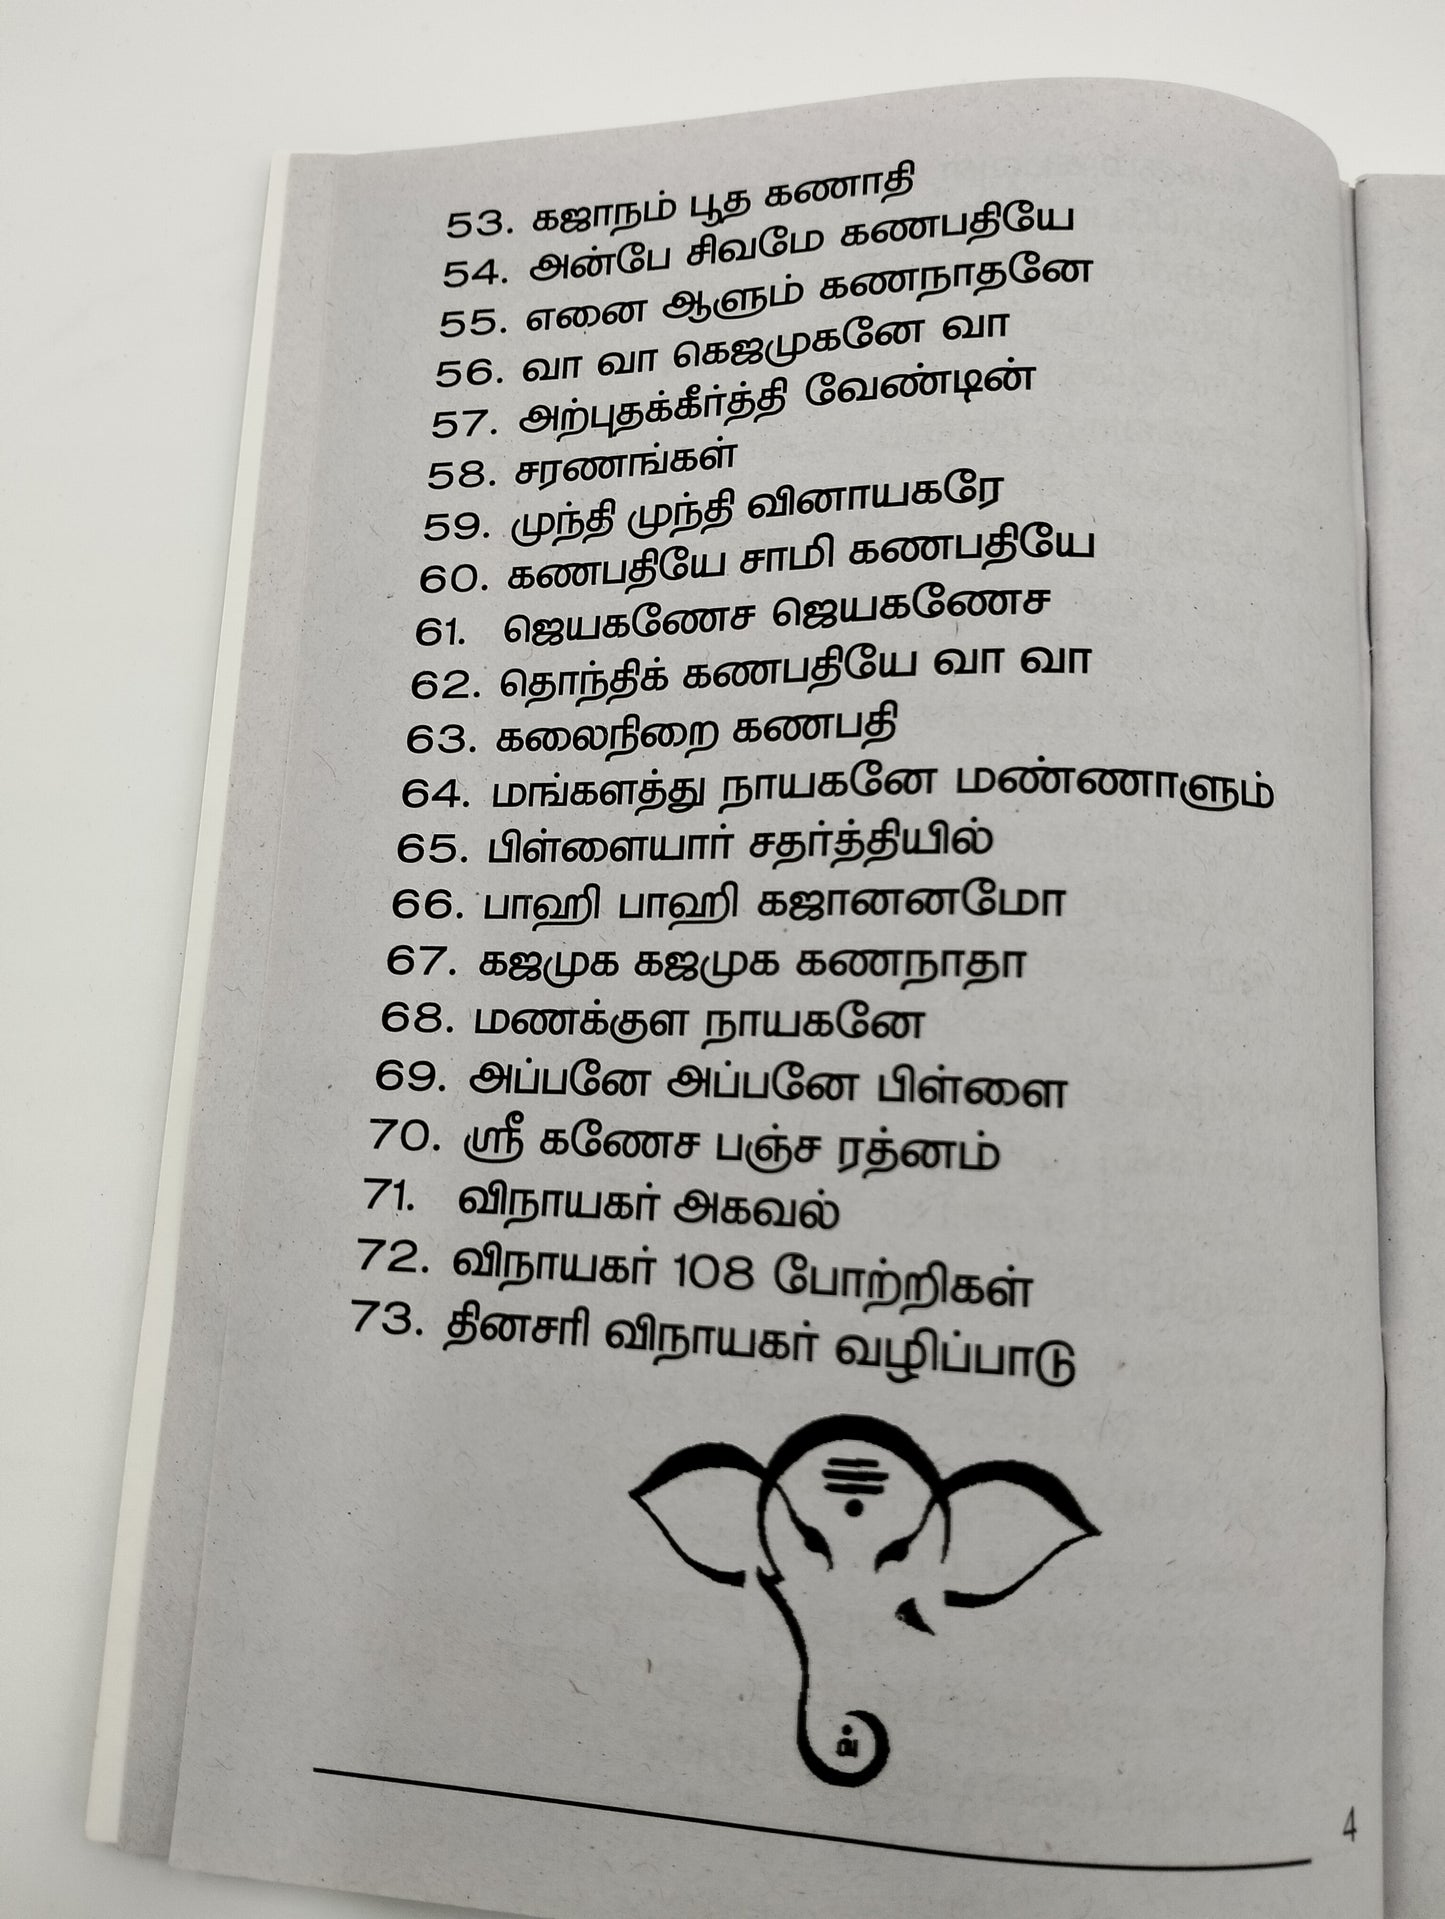 53. கஜாநம் பூத கணாதி
54. அன்பே சிவமே கணபதியே
55. எனை ஆளும் கணநாதனே
56. வா வா கெஜமுகனே வா
57. அற்புதக்கீர்த்தி வேண்டின்
58. சரணங்கள்
59. முந்தி முந்தி வினாயகரே
60. கணபதியே சாமி கணபதியே
61. ஜெயகணேச ஜெயகணேச
62. தொந்திக் கணபதியே வா வா
63. கலைநிறை கணபதி
64. மங்களத்து நாயகனே மண்ணாளும்
65. பிள்ளையார் சதர்த்தியில்
66. பாஹி பாஹி கஜானனமோ
67. கஜமுக கஜமுக கணநாதா
68. மணக்குள நாயகனே
69. அப்பனே அப்பனே பிள்ளை
70. ஸ்ரீ கணேச பஞ்ச ரத்னம்
71. விநாயகர் அகவல்
72. விநாயகர் 108 போற்றிகள்
73. தினசரி விநாயகர் வழிப்பாடு
4